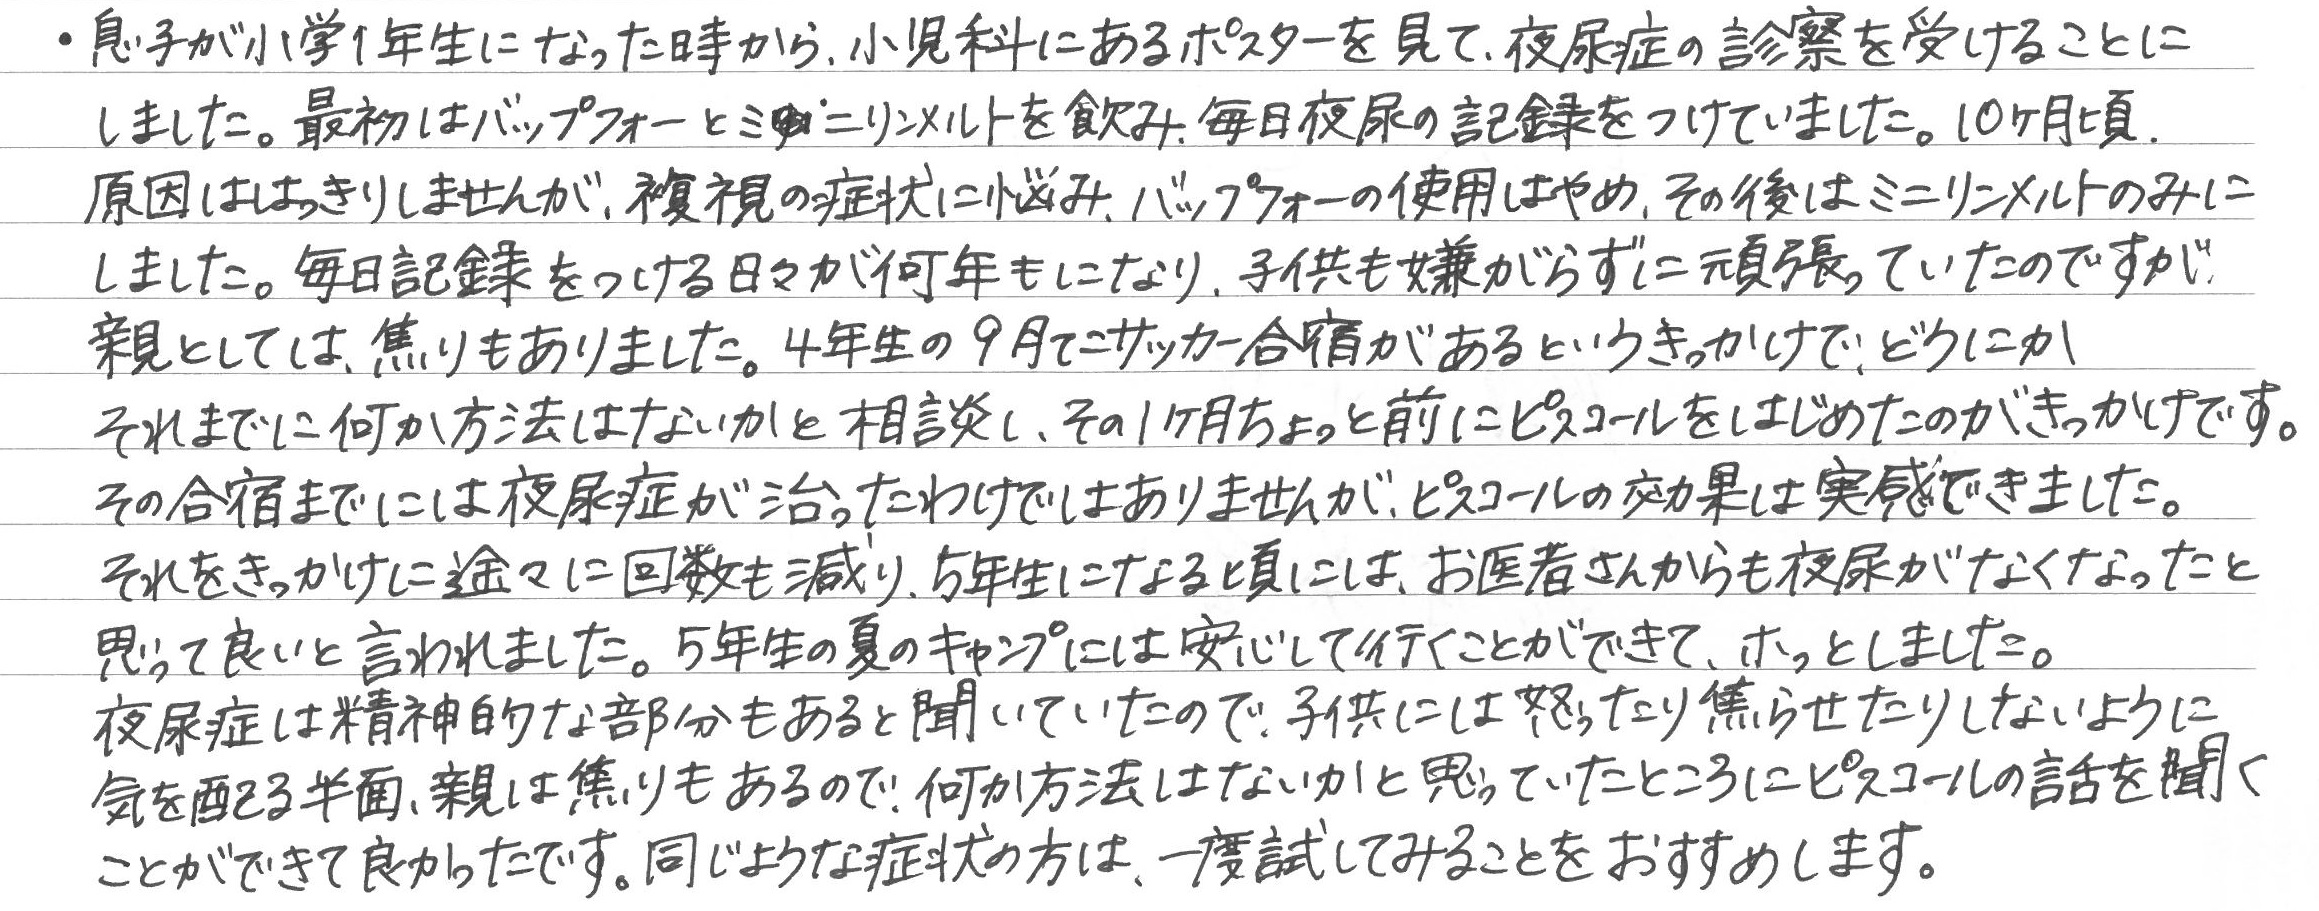 ・息子が小学1年生になった時から、小児科にあるポスターを見て、夜尿症の診察を受けることに
しました。最初はバップフォーとミニリンメルトを飲み、毎日夜尿の記録をつけていました。10ヶ月頃、
原因ははっきりしませんが、複視の症状に悩み、バップフォーの使用はやめ、その後はミニリンメルトのみに
しました。毎日記録をつける日々が何年もになり、子供も嫌がらずに頑張っていたのですが、
親としては、焦りもありました。4年生の9月にサッカー合宿があるというきっかけで、どうにか
それまでに何か方法はないかと相談し、その1ヶ月ちょっと前にピスコールをはじめたのがきっかけです。
その合宿までには夜尿症が治ったわけではありませんが、ピスコールの効果は実感できました。
それをきっかけに途々に回数も減り、5年生になる頃には、お医者さんからも夜尿がなくなったと
思って良いと言われました。5年生の夏のキャンプには安心して行くことができて、ホッとしました。
夜尿症は精神的な部分もあると聞いていたので、子供には怒ったり焦らせたりしないように
気を配る半面、親は焦りもあるので、何か方法はないかと思っていたところにピスコールの話を聞く
ことができて良かったです。同じような症状の方は、一度試してみることをおすすめします。